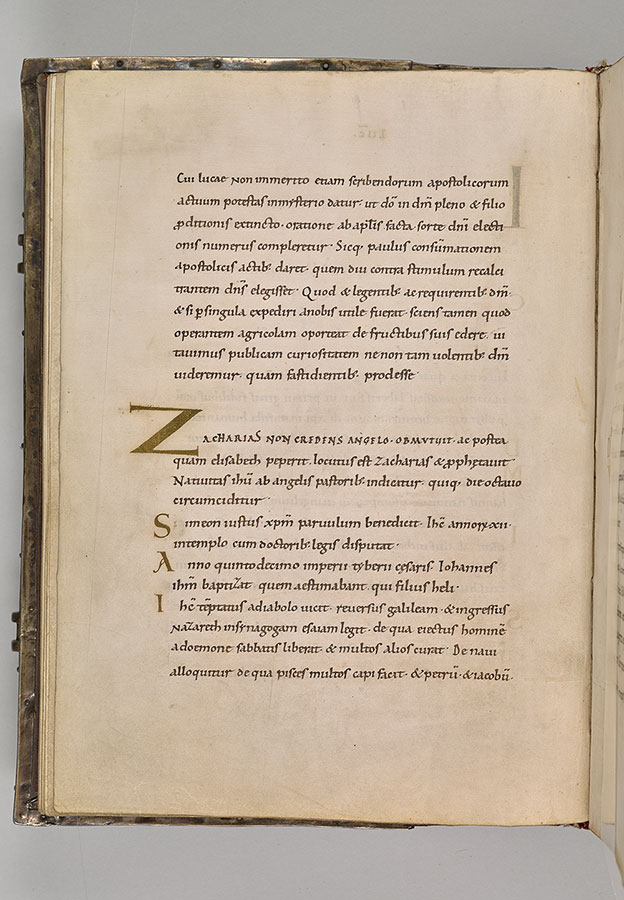 Cui lucae non inmerito etiam scribendorum apostolicorum
actuum potestas inmysterio datur· ut dō in dm̄ pleno & filio
ꝓditionis extincto· oratione ab apl̄is facta· sorte dn̄i electi
onis numerus compleretur· Sicq· paulus consūmationem
apostolicis actib· daret· quem diu contra stimulum recalci
trantem dn̄s elegisset· Quod & legentib· ac requirentib· dm̄·
& si ꝑsingula expediri anobis utile fuerat· sciens tamen quod
operantem agricolam oporteat de fructibus suis edere· ui
tauimus publicam curiositatem ne non tam uolentib· dm̄
uideremur· quam fastidientib· prodesse·
ZACHARIAS NON CREDENS ANGELO· OBMUTUIT· ac postea
quam elisabeth peperit· locutus est Zacharias & ꝓph&auit·
Natiuitas ihū ab angelis pastorib· indicatur· quiq· die octauo
circumciditur·
Simeon iustus xpm̄ paruulum benedicit· Ihc̄ annorx·xii·
intemplo cum doctorib· legis disputat·
Anno quintodecimo imperii tyberii cesaris· Iohannes
ihm̄ baptizat quem aestimabant· qui filius heli·
Ihc̄ tēptatus adiabolo uicit· reuersus galileam· & ingressus
nazareth insynagogam esaiam legit· de qua eiectus hominē
adoemone sabbatis liberat· & multos alios curat· De naui
alloquitur de qua pisces multos capi facit· & petrū· & iacobū·